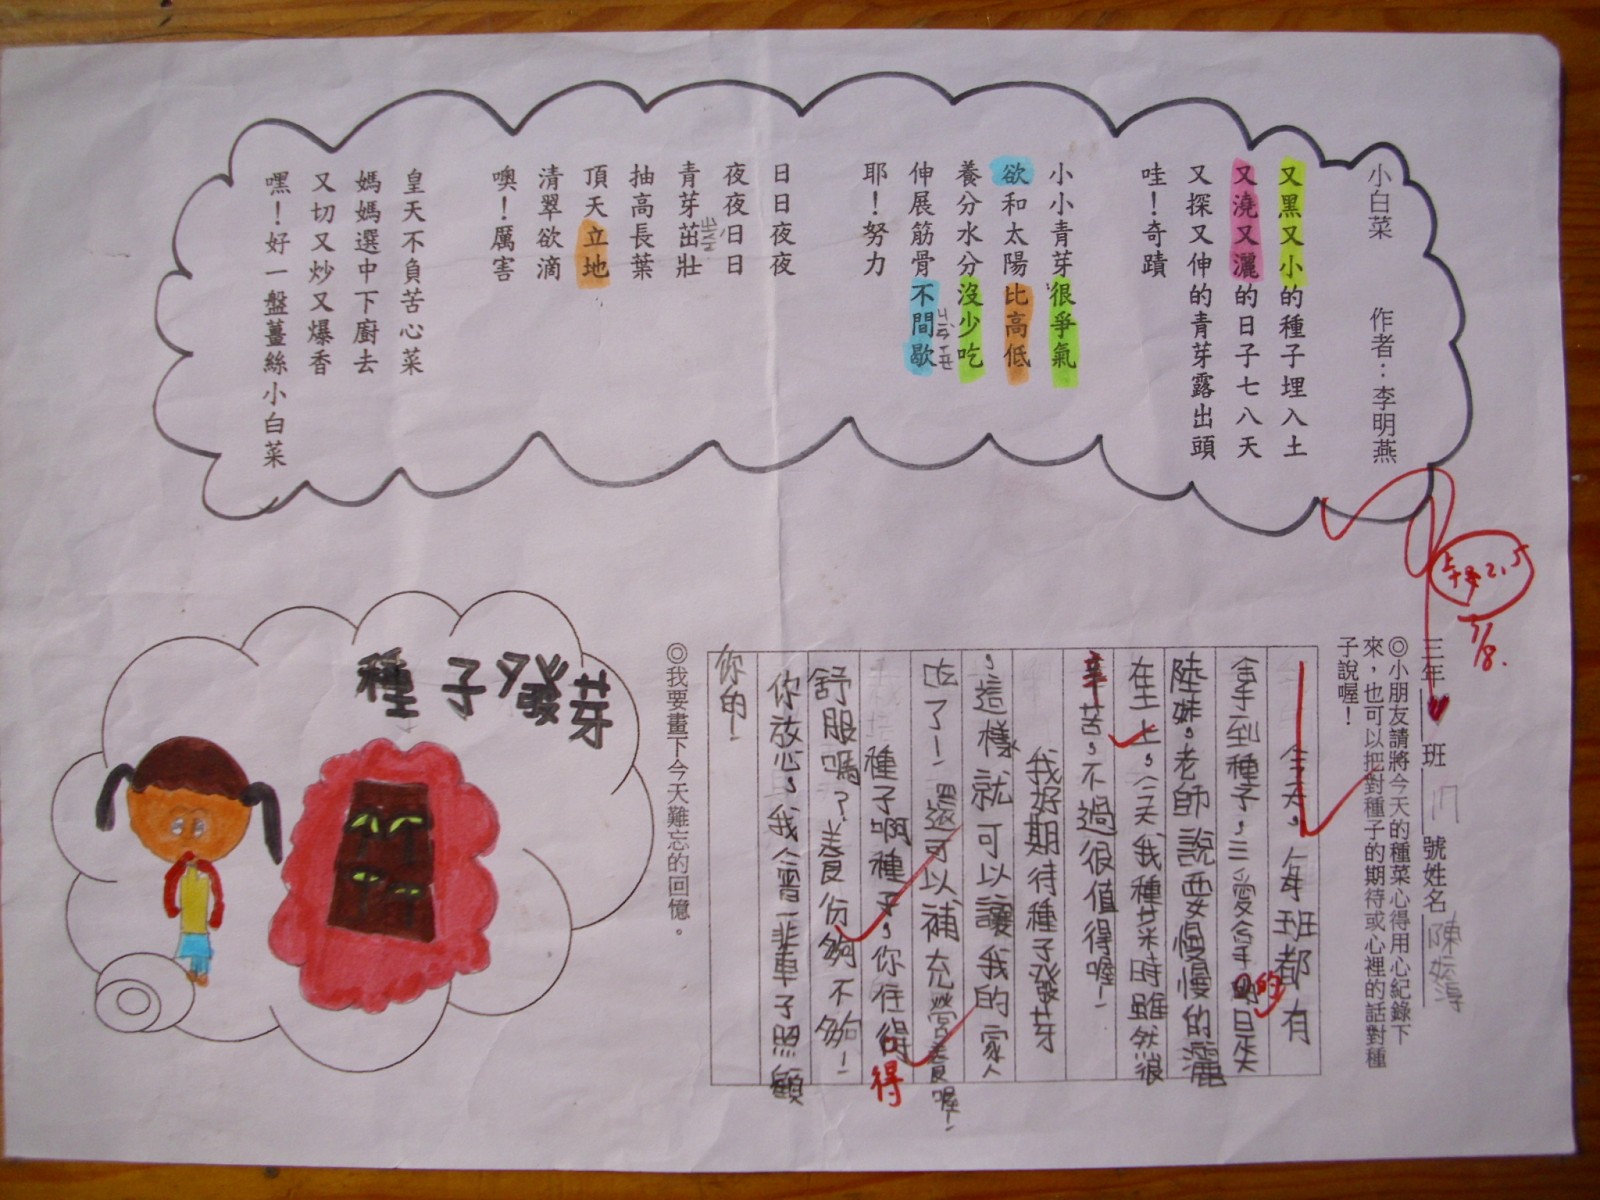 小白菜　作者：李明燕
又黑又小的種子埋入土
又澆又灑的日子七八天
又探又伸的青芽露出頭
哇！奇蹟
小小青芽很爭氣
欲和太陽比高低
養分水分沒少吃
伸展筋骨不間歇
ㄐㄧㄢˋ ㄒㄧㄝ
耶！努力
日日夜夜
夜夜日日
青芽茁壯
ㄓㄨㄛˊ
抽高長葉
頂天立地
清翠欲滴
噢！厲害
皇天不負苦心菜
媽媽選中下廚去
又切又炒又爆香
嘿！好一盤薑絲小白菜
7/8.
三年 班 號姓名 陳
◎小朋友請將今天的種菜心得用心紀錄下
來，也可以把對種子的期待或心裡的話對種
子說喔！
今天，每班都有
拿到種子，三愛拿的是大
陸妹，老師說要慢慢的灑
在土上，今天我種菜時雖然很
辛苦，不過很值得喔！
我好期待種子發芽
，這樣就可以讓我的家人
吃了！還可以補充營養喔！
種子啊種子，你住得
得
舒服嗎？養份夠不夠！
你放心，我會一輩子照顧
你的！
◎我要畫下今天難忘的回憶。
種子發芽